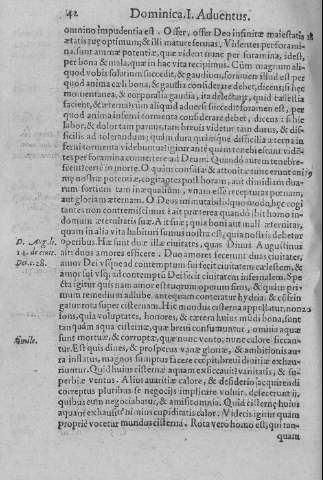 42 Dominica. I. Aduentus.
omnino impudentia est. O ffer, offer Deo infinitæ maiestatis
ætatis tuę optimum, & illi mature seruas. Videntes per forami-
na, sunt animæ potentiæ, quæ vident mane per foramina, id est,
per bona & mala, quæ in hac vita recipimus. Cùm magnum ali-
quod vobis solarium succedit, & gaudium, foramen illud est per
quod anima cæli bona, & gaudia considerare debet, dicens; si hęc
momentanea, & corporalia gaudia, ita delectant, quid cælestia
facient, & æterna? cùm aliquid aduersi succedit foramen est, per
quod anima inferni tormenta considerare debet, dicens: si hic
labor, & dolor tam paruus, tam breuis videtur tam durus, & dif-
ficilis ad tolerandum; quàm dura quámque difficilia æterna in-
ferni tormenta videbuntur?
tes per foramina conuertere ad Deum. Quando autem tenebre-
O quàm consusæ & attonitæ tunc erunt ani-
mę nostræ potentiæ, cogitantes post horam, aut dimidiam dua-
rum sortium tam inæqualium, vnam esse recepturas pœnam,
aut gloriam æternam. O Deus immutabilis quomodo hęc cogi-
tantes non contremiscimus? est præterea quando ibit homo in
domum æternitatis suæ. Ait suæ; quia boni aut mali æternitas,
quam in alia vita habituri sumus nostra est, quia nostris debetur
operibus. Hæ sunt duæ illæ ciuitates, quas Diuus Augustinus
ait duos amores efficere. Duo amores fecerunt duas ciuitates,
amor Dei vsque ad contemptum sui fecit ciuitatem cælestem, &
amor sui vsq; ad contemptũ Dei fecit ciuitatem infernalem. Spe-
cta igitur quis nam amor est tuorum operum finis, & quàm pri-
mum remedium adhibe, antequam conteratur hydria, & cõfrin-
gatur rota super cisternam. Hic mundus cisterna appellatur, nonzo
ions, quia voluptates, honores, & cætera huius mũdi bona, sunt
tanquàm aqua cisternæ, quæ breui consumuntur, omnia aquæ
sunt mortuæ, & corruptæ, quæ nunc vento, nunc calore siccan-
tur. Est quis diues, & prosperus vanæ gloriæ, & ambitionis au-
ra inflatus, magnos sumptus facere cœpit, breui diuitiæ exhau-
riuntur. Quid huius cisternæ aquam exsiccauit? vanitatis, & su-
perbiæ ventus. Alius auaritiæ calore, & desiderio acquirendi
correptus pluribus se negocijs implicare voluit,
quibus cum negociabatur, & amisit omnia. Quid cisternę huius
aquam exhausit? nimius cupiditatis calor. Videtis igitur quàm
propriè vocetur mundus cisterna. Rota vero homo est, qui tan-
quam
D. Aug. li.
14. de ciuit.
Dei c. 28.
Simile.